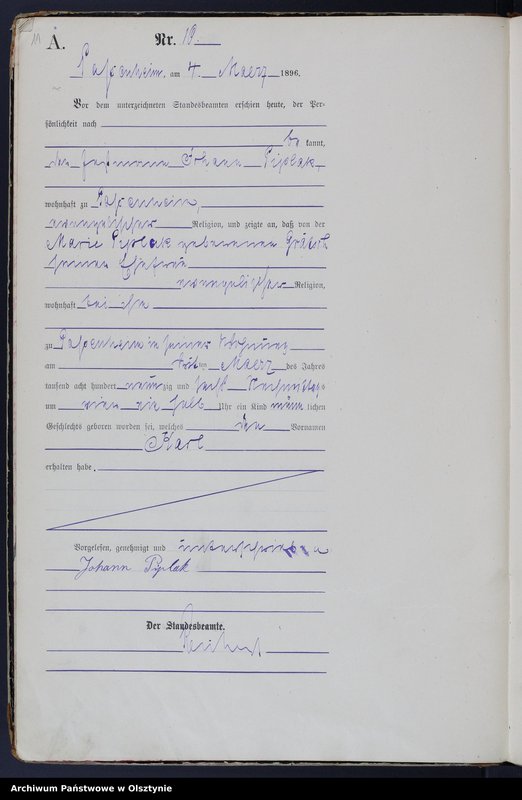 11
A.
Nr. 19.
am 4. Maerz 1896.
Vor dem unterzeichneten Standesbeamten erschien heute, der Per-
sönlichkeit nach
be kannt,
der Johann Piplak
wohnhaft zu
evangelischer Religion, und zeigte an, daß von der
Marie Piplak geborenen
seiner Ehefrau
evangelischer Religion,
wohnhaft bei ihm
zu in seiner Wohnung
am ten Maerz des Jahres
tausend acht hundert neun zig und sechs Nachmittags
um vier ein halb Uhr ein Kind männ lichen
Geschlechts geboren worden sei, welches den Vornamen
Karl
erhalten habe.
Vorgelesen, genehmigt und unterschrieben
Johann Piplak
Der Standesbeamte.
Archiwum Państwowe w Olsztynie